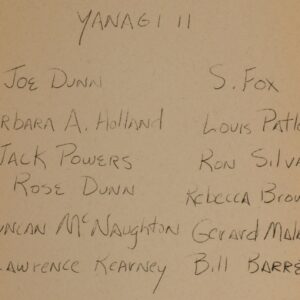 YANAGI 11
JOE DUNN
rbara A. Holland
JACK POWERS
ROSE DUNN
uncan McNaughton
Lawrence Kearney
S. FOX
Louis Patl
RON SILVA
Rebecca Brow
Gerard Mal
Bill BARRE